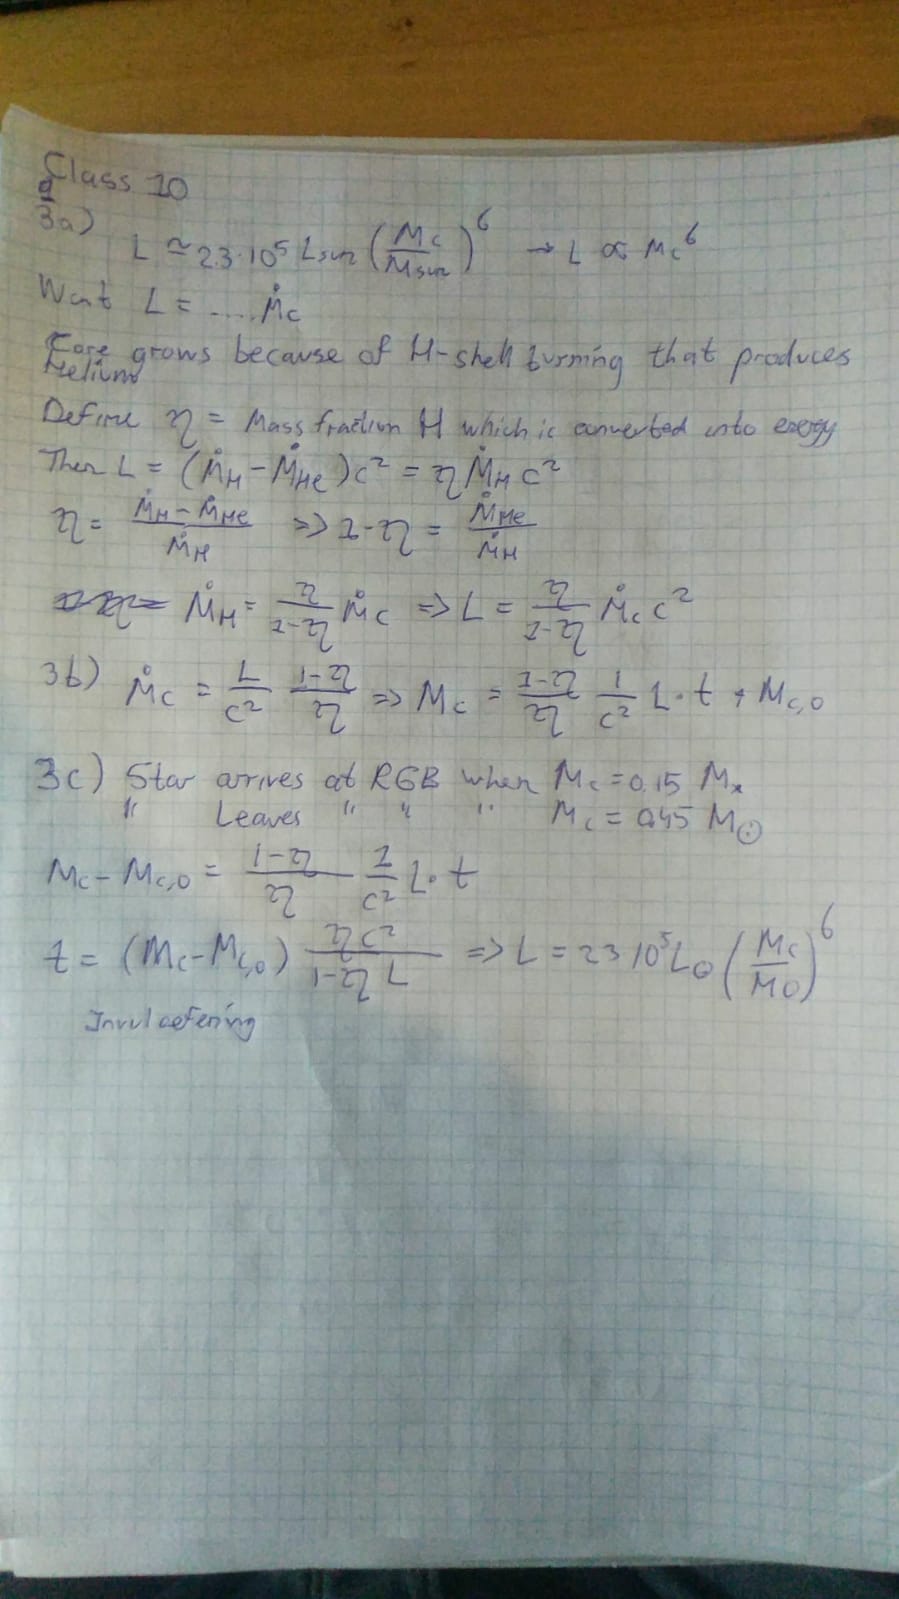 Class 10
9
3a)
L ≃ 2.3·10⁵ Lsun (Mc/Msun)⁶ → L ∝ Mc⁶
Want L = ..... Ṁc
Core grows because of H-shell burning that produces
Helium
Define η = Mass fraction H which is converted into energy
Then L = (ṀH - ṀHe)c² = ηṀH c²
η = (ṀH - ṀHe)/ṀH => 1-η = ṀHe/ṀH
ṀH = η/(1-η) Ṁc => L = η/(1-η) Ṁc c²
3b) Ṁc = L/c² (1-η)/η => Mc = (1-η)/η 1/c² L·t + Mc,0
3c) Star arrives at RGB when Mc = 0.15 M*
" Leaves " " " Mc = 0.45 M⊙
Mc - Mc,0 = (1-η)/η 1/c² L·t
t = (Mc - Mc,0) ηc²/(1-η L) => L = 2.3 10⁵ L⊙ (Mc/M⊙)⁶